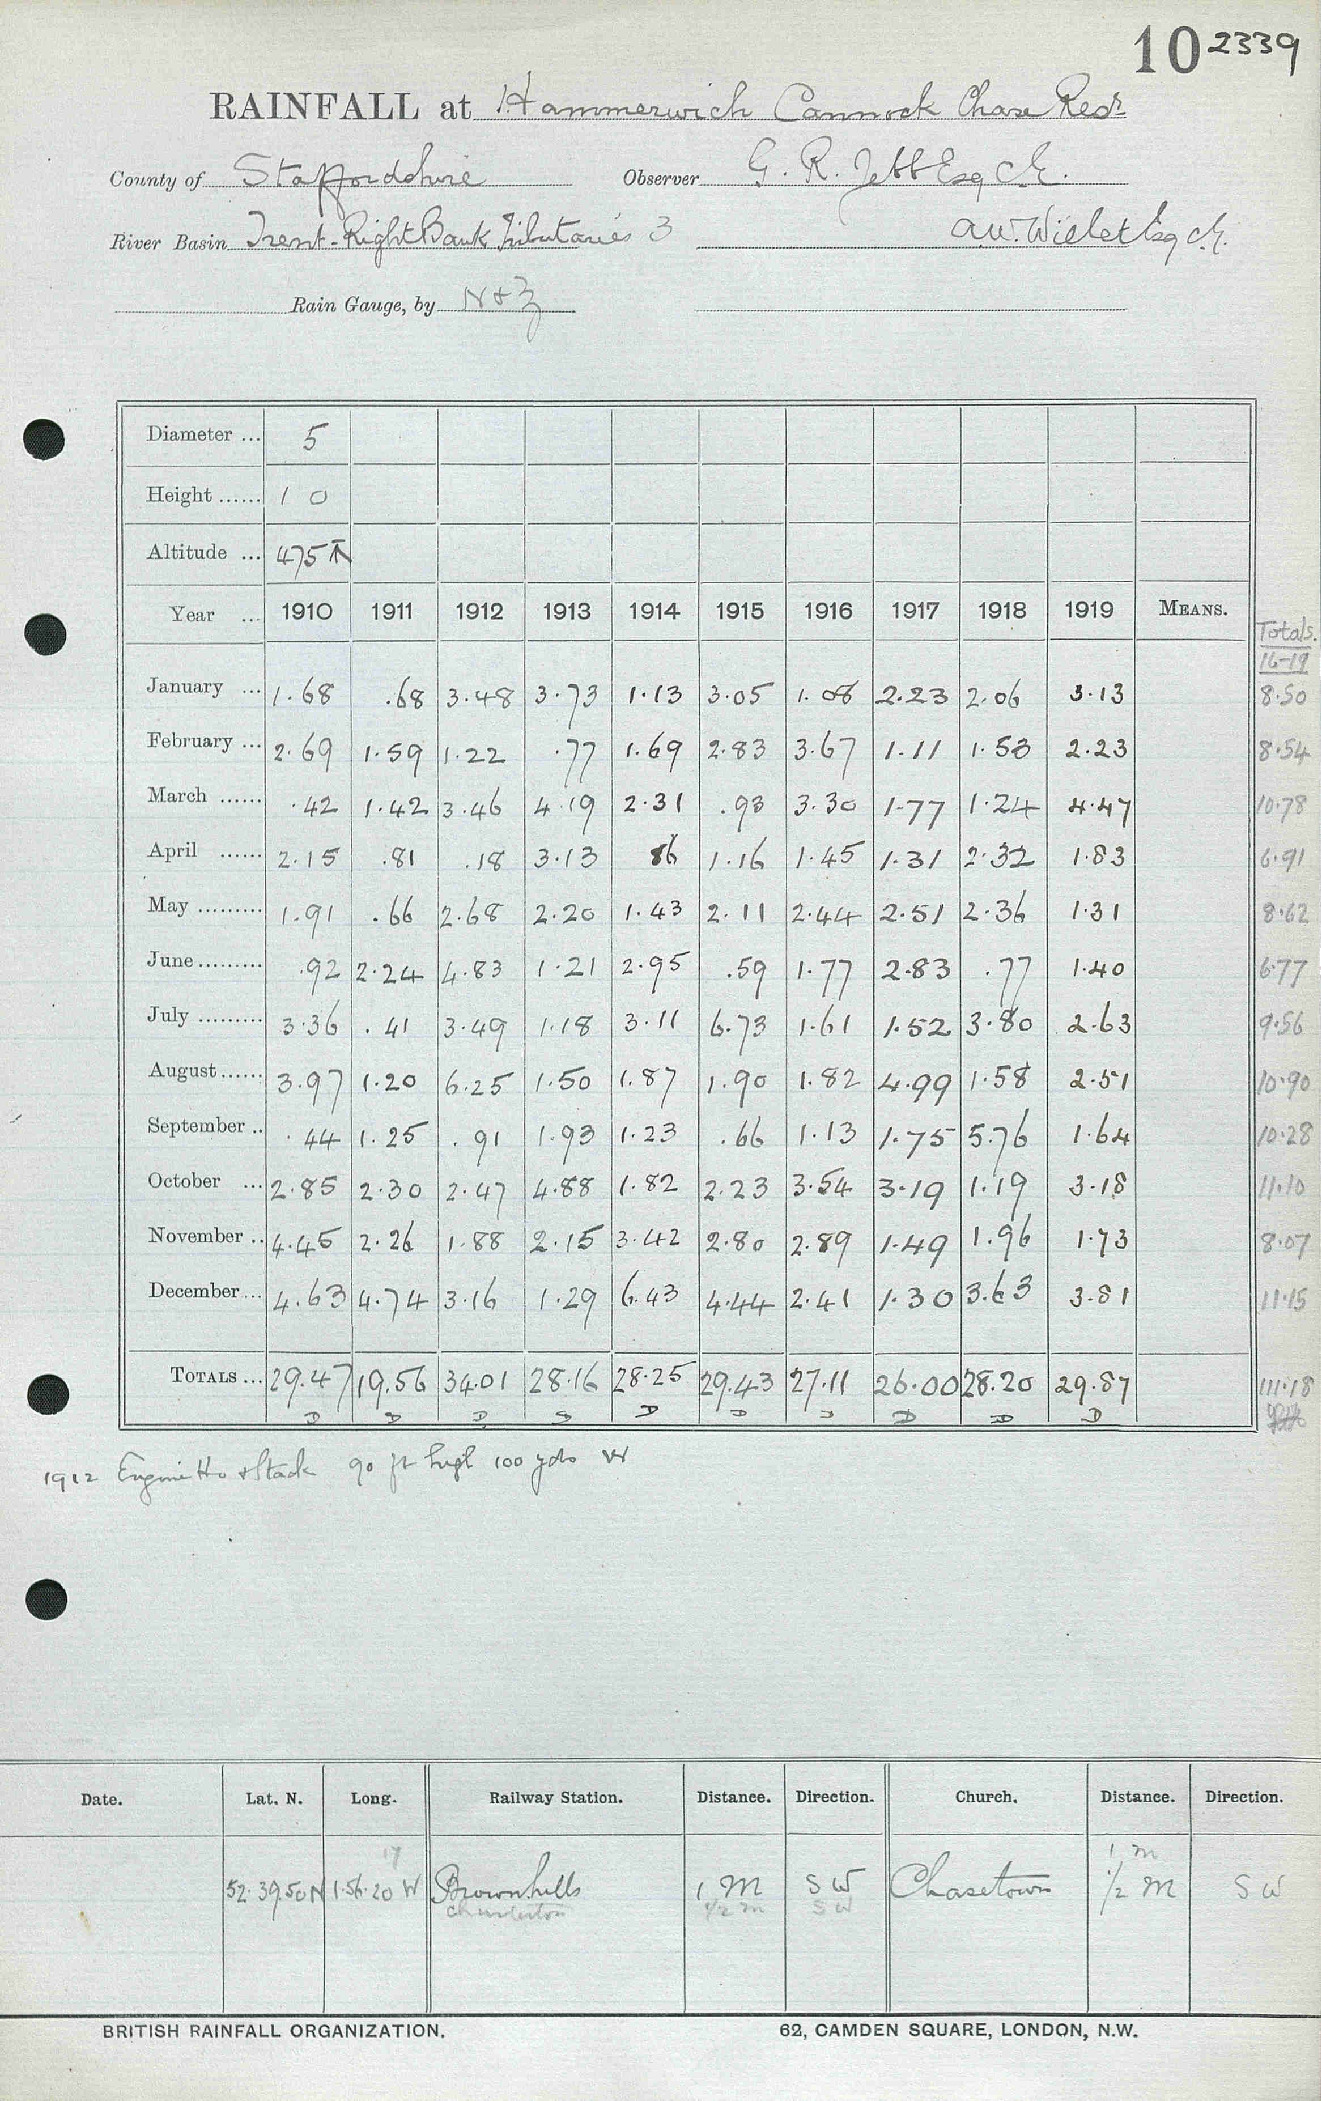 10 2339
RAINFALL at Hammerwich Cannock Chase Resr
County of Staffordshire Observer G. R. Jebb Esq C.E.
River Basin Trent-Right Bank Tributaries 3 A.W. Willet Esq C.E.
Rain Gauge, by N+Z
Diameter ... 5
Height ...... 1 0
Altitude ... 475
Year ... 1910 1911 1912 1913 1914 1915 1916 1917 1918 1919 MEANS. Totals. 16-19
January ... 1.68 .68 3.48 3.73 1.13 3.05 1.08 2.23 2.06 3.13 8.50
February ... 2.69 1.59 1.22 .77 1.69 2.83 3.67 1.11 1.53 2.23 8.54
March ...... .42 1.42 3.46 4.19 2.31 .93 3.30 1.77 1.24 4.47 10.78
April ...... 2.15 .81 .18 3.13 86 1.16 1.45 1.31 2.32 1.83 6.91
May ......... 1.91 .66 2.68 2.20 1.43 2.11 2.44 2.51 2.36 1.31 8.62
June ......... .92 2.24 4.83 1.21 2.95 .59 1.77 2.83 .77 1.40 6.77
July ......... 3.36 .41 3.49 1.18 3.11 6.73 1.61 1.52 3.80 2.63 9.56
August ...... 3.97 1.20 6.25 1.50 1.87 1.90 1.82 4.99 1.58 2.51 10.90
September .. .44 1.25 .91 1.93 1.23 .66 1.13 1.75 5.76 1.64 10.28
October ... 2.85 2.30 2.47 4.88 1.82 2.23 3.54 3.19 1.19 3.18 11.10
November .. 4.45 2.26 1.88 2.15 3.42 2.80 2.89 1.49 1.96 1.73 8.07
December ... 4.63 4.74 3.16 1.29 6.43 4.44 2.41 1.30 3.63 3.81 11.15
TOTALS ... 29.47 19.56 34.01 28.16 28.25 29.43 27.11 26.00 28.20 29.87 111.18
D D D D D D D D D D
1912 Engine Ho + Stack 90 ft high 100 yds W
Date. Lat. N. Long. Railway Station. Distance. Direction. Church. Distance. Direction.
17 1 m
52.39.50 N 1.56.20 W Brownhills 1 M SW Chasetown 1/2 M SW
1/2 m SW
BRITISH RAINFALL ORGANIZATION. 62, CAMDEN SQUARE, LONDON, N.W.